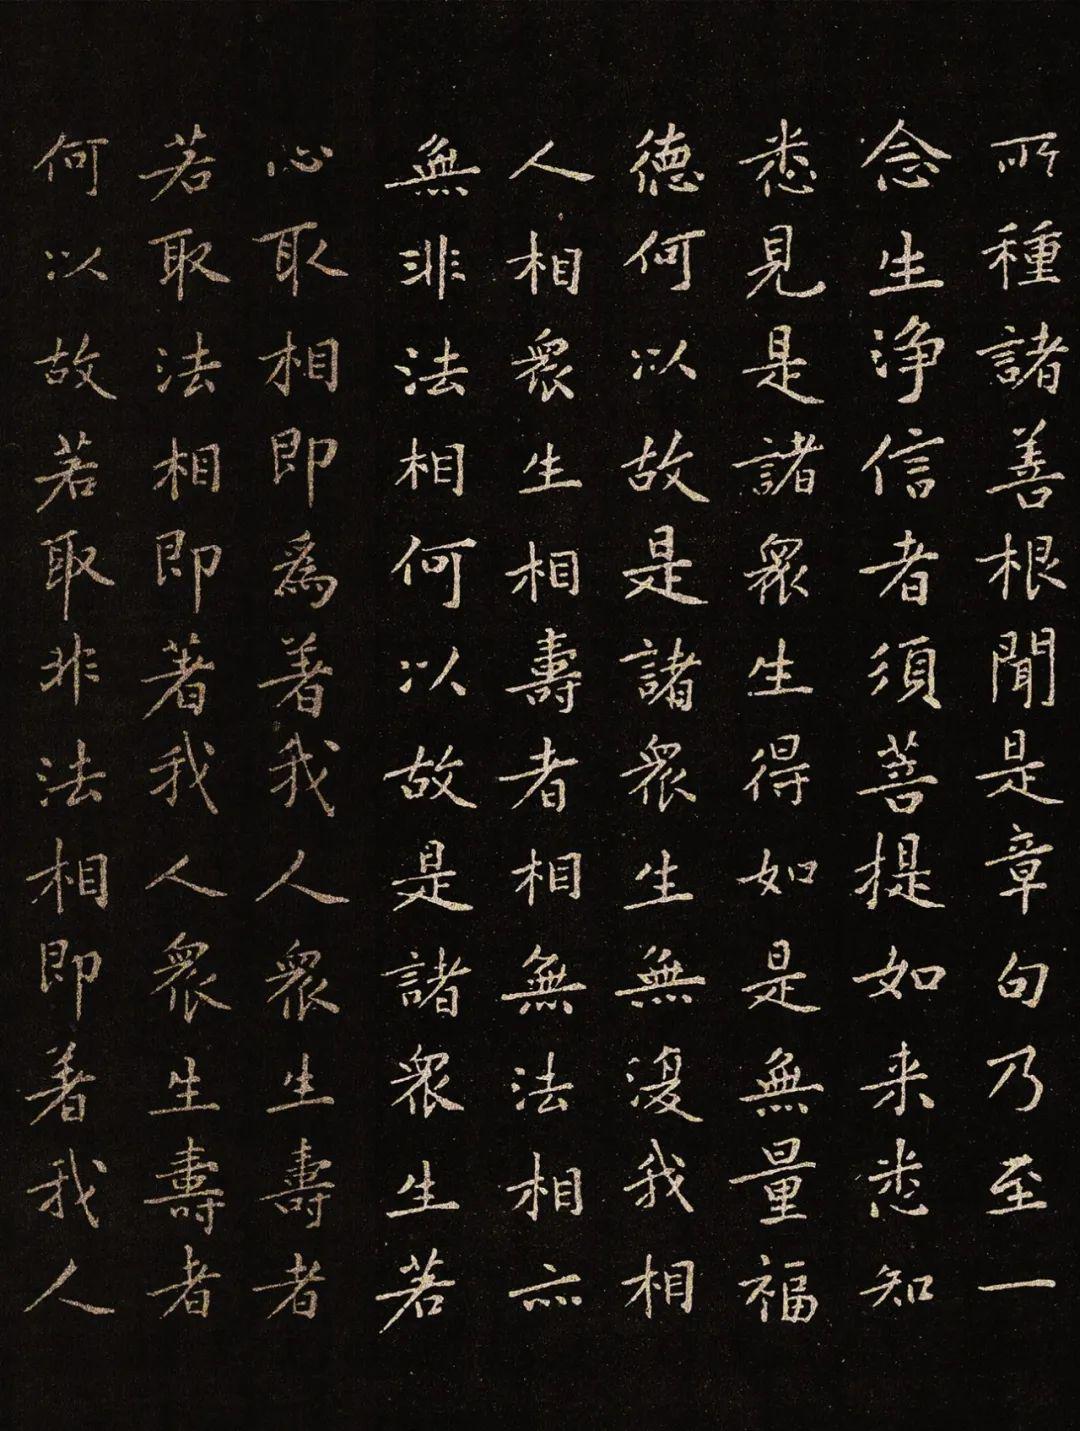 所種諸善根聞是章句乃至一
念生淨信者須菩提如来悉知
悉見是諸眾生得如是無量福
德何以故是諸眾生無復我相
人相眾生相壽者相無法相亦
無非法相何以故是諸眾生若
心取相即為著我人眾生壽者
若取法相即著我人眾生壽者
何以故若取非法相即著我人